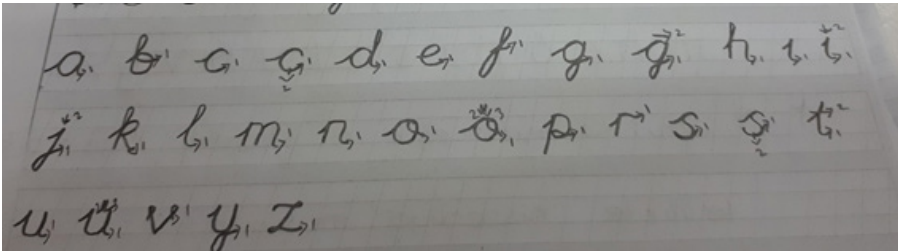 a b c ç d e f g ğ h ı i
j k l m n o ö p r s ş t
u ü v y z